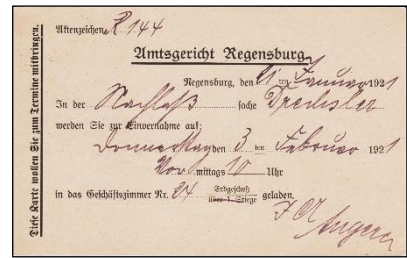 Diese Karte wollen Sie zum Termine mitbringen.
Aktenzeichen R 144
Amtsgericht Regensburg
Regensburg, den ten Januar 1921
In der Nachlaß sache Drechsler
werden Sie zur Einvernahme auf:
Donnerstag den 3 ten Februar 1921
Vor mittags 10 Uhr
in das Geschäftszimmer Nr. 24 Erdgeschoß geladen.
über 1. Stiege